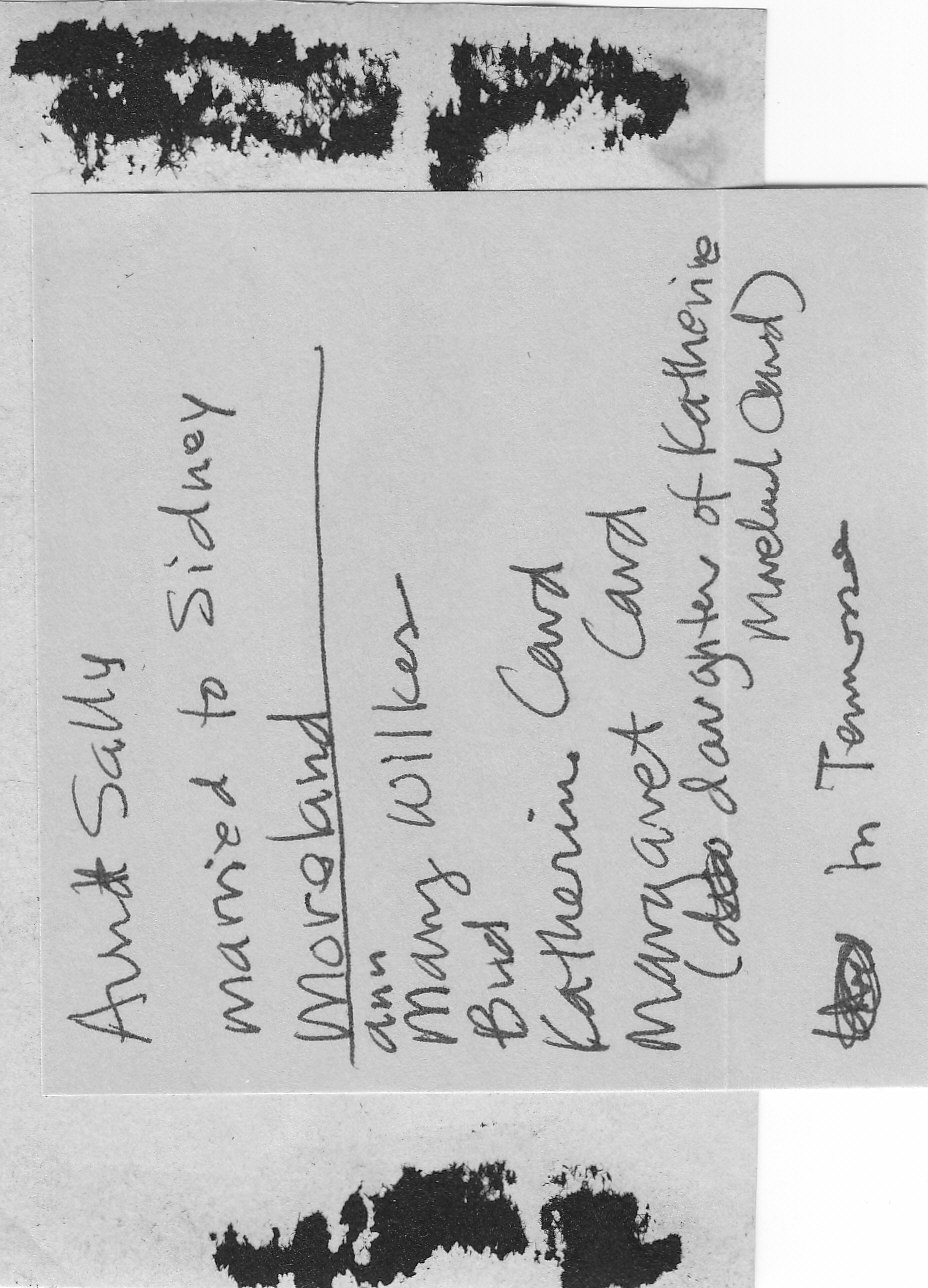 Aunt Sally
married to Sidney
Moreland
ann
Mary Wilkes
Bud
Katherine Card
Margaret Card
( daughter of Katherine
Moreland Card)
In